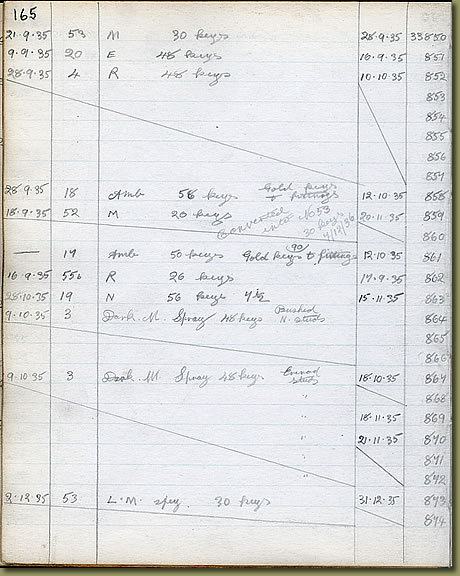 165
21·9·35 53 M 30 keys 28·9·35 33850
9·9·35 20 E 48 keys 16·9·35 851
28·9·35 4 R 48 keys 10·10·35 852
853
854
855
856
857
28·9·35 18 Amb 56 keys Gold keys & fittings 12·10·35 858
18·9·35 52 M 20 keys 20·11·35 859
Converted into No 53
30 keys
860
— 17 Amb 50 keys Gold keys to fittings 12·10·35 861
16·9·35 55a R 26 keys 17·9·35 862
28·10·35 19 N 56 keys 7½ 15·11·35 863
9·10·35 3 Dark. M. Spray 48 keys Bushed N. studs 864
865
866
9·10·35 3 Dark. M. Spray 48 keys studs 18·10·35 867
" 868
" 18·11·35 869
" 21·11·35 870
" 871
" 872
2·12·35 53 L·M· 30 keys 31·12·35 873
874